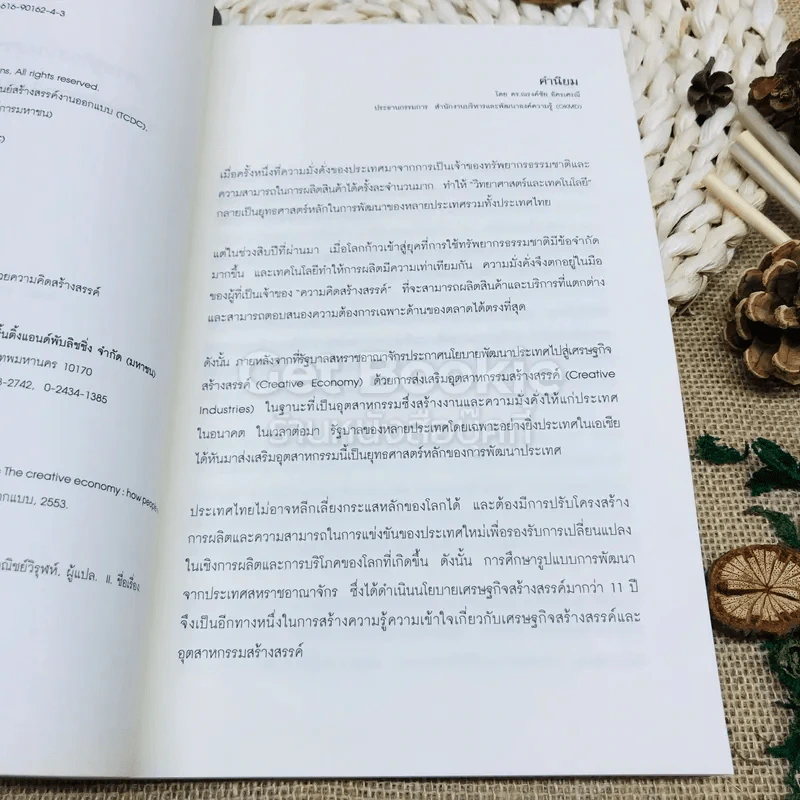 616-90162-4-3
ns. All rights reserved.
นย์สร้างสรรค์งานออกแบบ (TCDC),
การมหาชน)
วยความคิดสร้างสรรค์
ิ้นติ้งแอนด์พับลิชชิ่ง จำกัด (มหาชน)
ทพมหานคร 10170
3-2742, 0-2434-1385
The creative economy : how people
อกแบบ, 2553.
ณิชย์วิรุฬห์, ผู้แปล. II. ชื่อเรื่อง
คำนิยม
โดย ดร.ณรงค์ชัย อัครเศรณี
ประธานกรรมการ สำนักงานบริหารและพัฒนาองค์ความรู้ (OKMD)
เมื่อครั้งหนึ่งที่ความมั่งคั่งของประเทศมาจากการเป็นเจ้าของทรัพยากรธรรมชาติและ
ความสามารถในการผลิตสินค้าได้ครั้งละจำนวนมาก ทำให้ "วิทยาศาสตร์และเทคโนโลยี"
กลายเป็นยุทธศาสตร์หลักในการพัฒนาของหลายประเทศรวมทั้งประเทศไทย
แต่ในช่วงสิบปีที่ผ่านมา เมื่อโลกก้าวเข้าสู่ยุคที่การใช้ทรัพยากรธรรมชาติมีข้อจำกัด
มากขึ้น และเทคโนโลยีทำให้การผลิตมีความเท่าเทียมกัน ความมั่งคั่งจึงตกอยู่ในมือ
ของผู้ที่เป็นเจ้าของ "ความคิดสร้างสรรค์" ที่จะสามารถผลิตสินค้าและบริการที่แตกต่าง
และสามารถตอบสนองความต้องการเฉพาะด้านของตลาดได้ตรงที่สุด
ดังนั้น ภายหลังจากที่รัฐบาลสหราชอาณาจักรประกาศนโยบายพัฒนาประเทศไปสู่เศรษฐกิจ
สร้างสรรค์ (Creative Economy) ด้วยการส่งเสริมอุตสาหกรรมสร้างสรรค์ (Creative
Industries) ในฐานะที่เป็นอุตสาหกรรมซึ่งสร้างงานและความมั่งคั่งให้แก่ประเทศ
ในอนาคต ในเวลาต่อมา รัฐบาลของหลายประเทศโดยเฉพาะอย่างยิ่งประเทศในเอเชีย
ได้หันมาส่งเสริมอุตสาหกรรมนี้เป็นยุทธศาสตร์หลักของการพัฒนาประเทศ
ประเทศไทยไม่อาจหลีกเลี่ยงกระแสหลักของโลกได้ และต้องมีการปรับโครงสร้าง
การผลิตและความสามารถในการแข่งขันของประเทศใหม่เพื่อรองรับการเปลี่ยนแปลง
ในเชิงการผลิตและการบริโภคของโลกที่เกิดขึ้น ดังนั้น การศึกษารูปแบบการพัฒนา
จากประเทศสหราชอาณาจักร ซึ่งได้ดำเนินนโยบายเศรษฐกิจสร้างสรรค์มากว่า 11 ปี
จึงเป็นอีกทางหนึ่งในการสร้างความรู้ความเข้าใจเกี่ยวกับเศรษฐกิจสร้างสรรค์และ
อุตสาหกรรมสร้างสรรค์